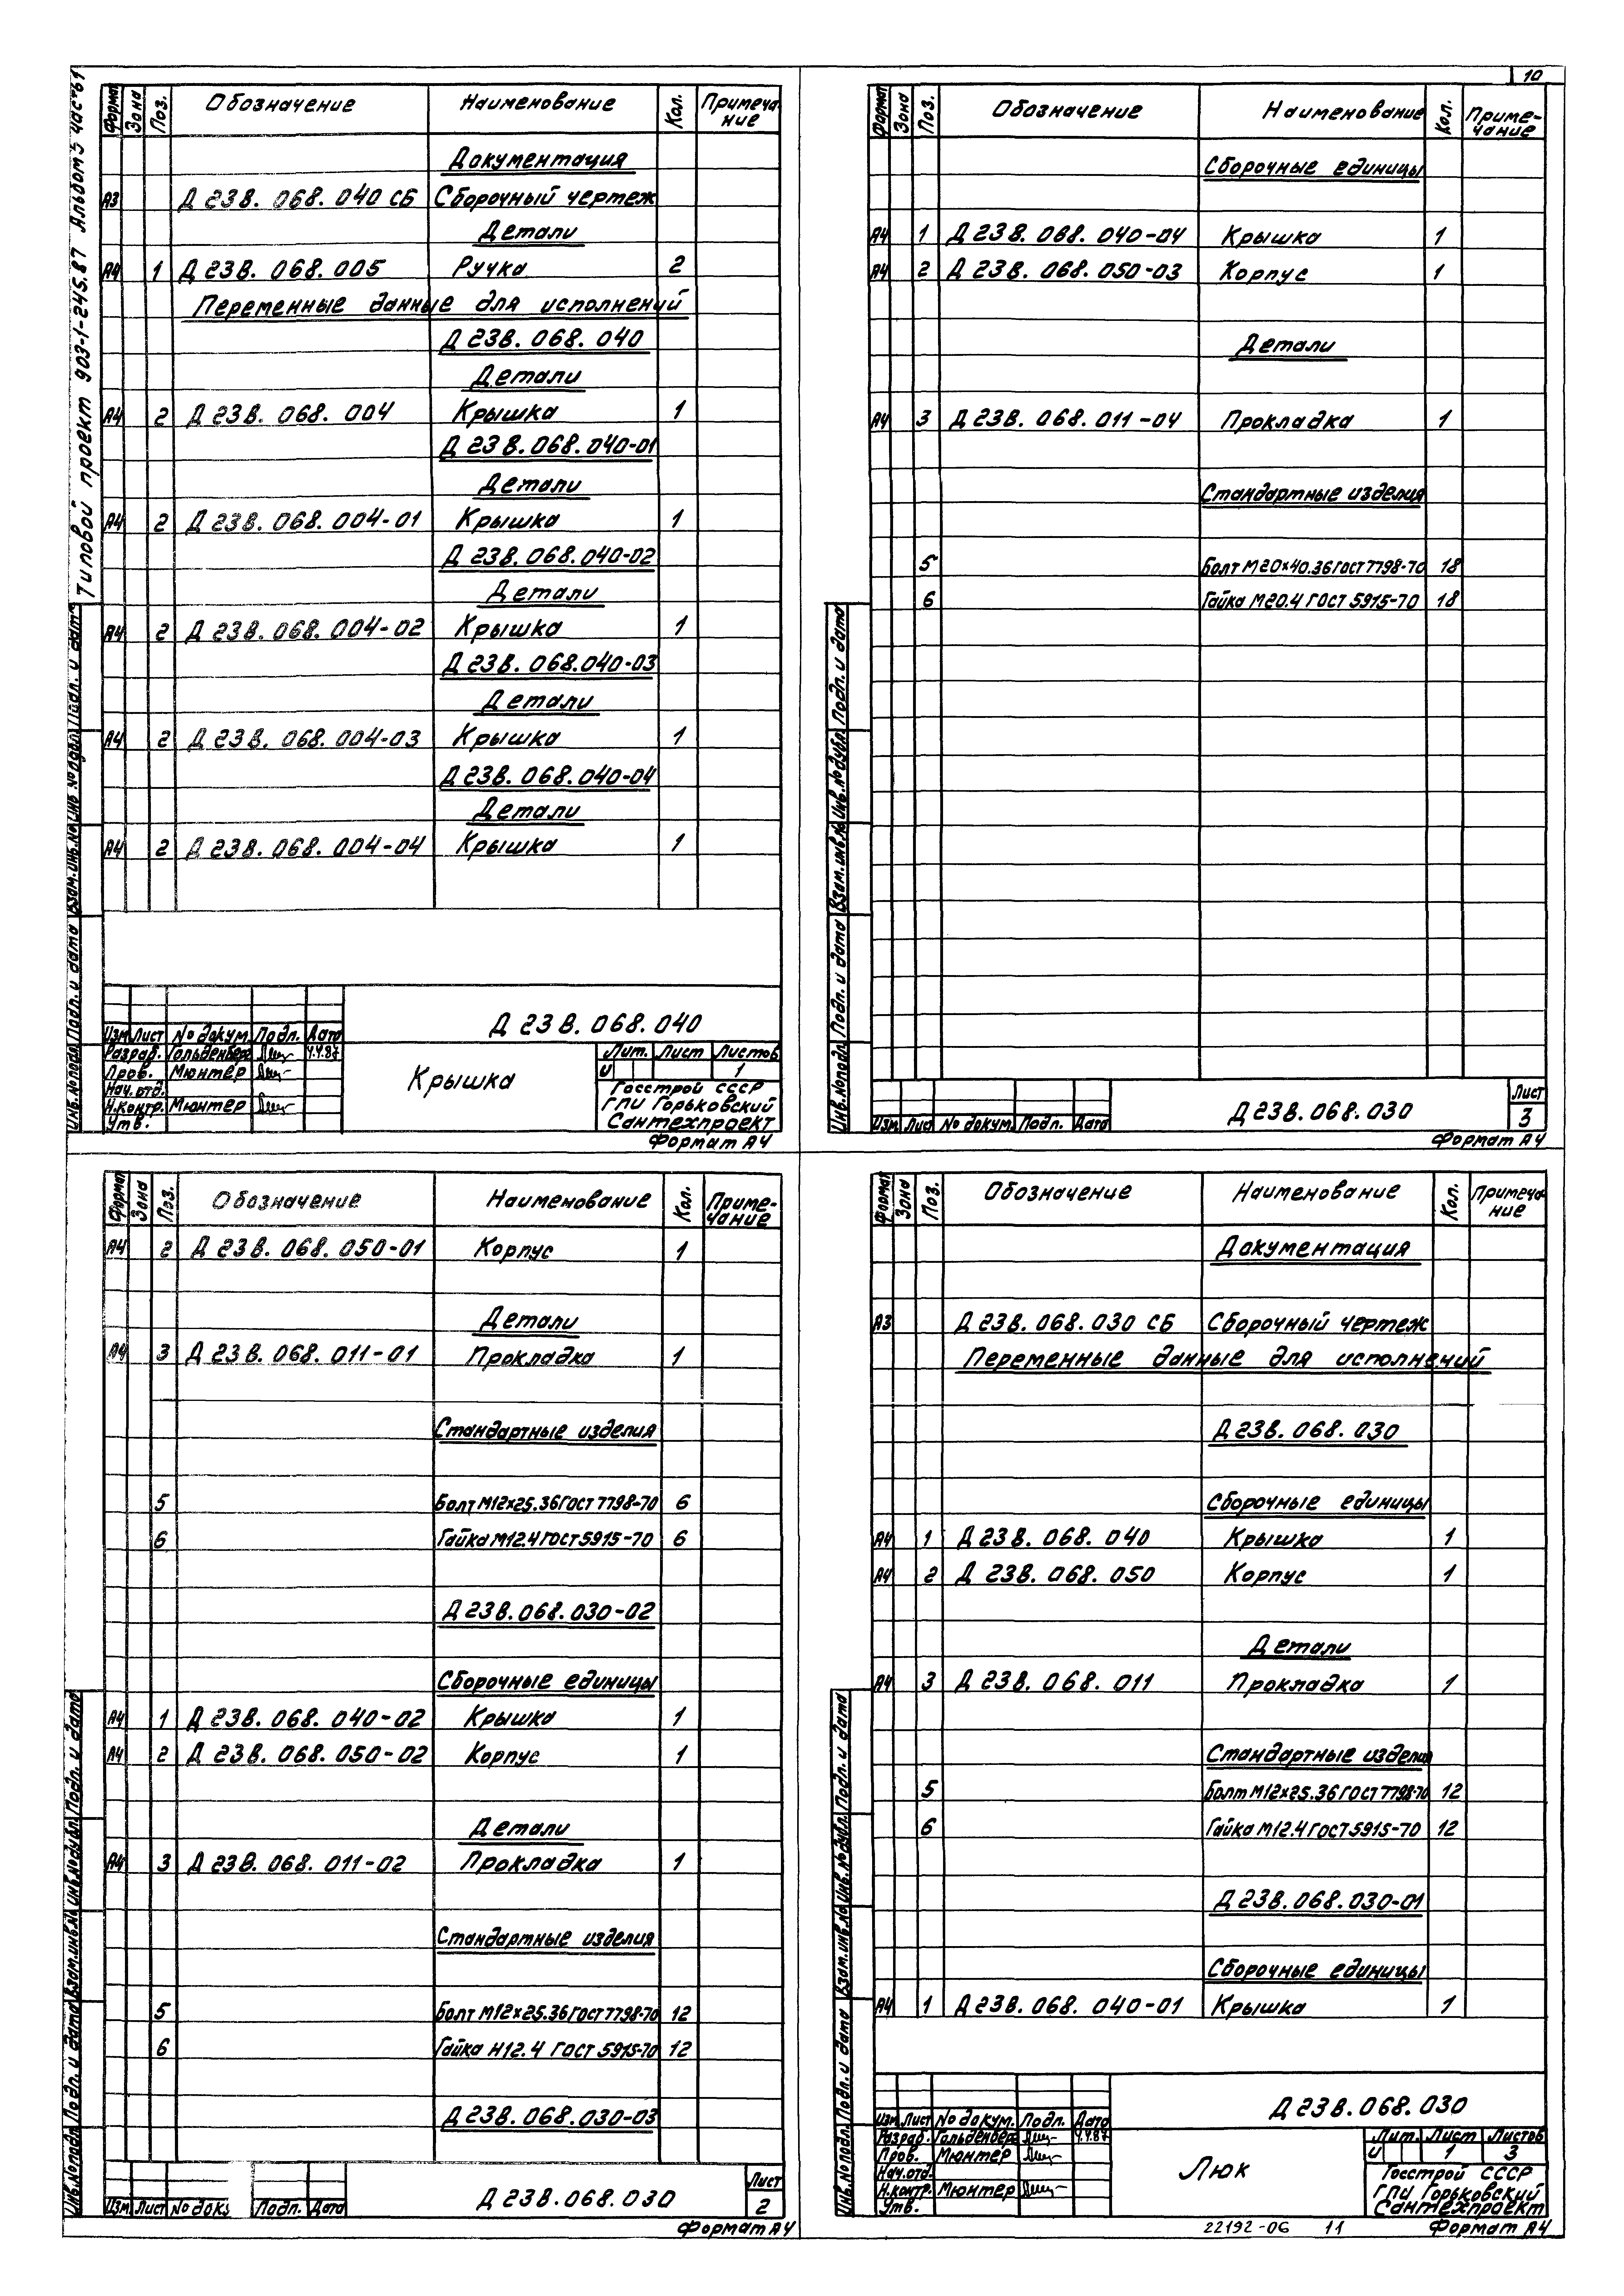 10
Типовой проект 903-1-245.87 Альбом 5 часть 1
Формат Зона Поз. Обозначение Наименование Кол. Примечание
Документация
А3 Д 23В. 068. 040 СБ Сборочный чертеж
Детали
А4 1 Д 23В. 068. 005 Ручка 2
Переменные данные для исполнений
Д 23В. 068. 040
Детали
А4 2 Д 23В. 068. 004 Крышка 1
Д 23В.068.040-01
Детали
А4 2 Д 23В. 068. 004-01 Крышка 1
Д 23В.068.040-02
Детали
А4 2 Д 23В. 068. 004-02 Крышка 1
Д 23В. 068.040-03
Детали
А4 2 Д 23В. 068. 004-03 Крышка 1
Д 23В. 068.040-04
Детали
А4 2 Д 23В. 068. 004-04 Крышка 1
Инв.№подл. Подп. и дата Взам.инв.№ Инв.№дубл. Подп. и дата
Д 23В. 068. 040
Изм Лист № докум. Подп. Дата
Разраб. Гольденберг 4.4.87
Пров. Мюнтер
Нач.отд.
Н.контр. Мюнтер
Утв.
Крышка
Лит. Лист Листов
И 1
Госстрой СССР
ГПИ Горьковский
Сантехпроект
Формат А4
Формат Зона Поз. Обозначение Наименование Кол. Приме-чание
Сборочные единицы
А4 1 Д 23В. 068. 040-04 Крышка 1
А4 2 Д 23В. 068. 050-03 Корпус 1
Детали
А4 3 Д 23В. 068. 011-04 Прокладка 1
Стандартные изделия
5 Болт М20×40.36 ГОСТ 7798-70 18
6 Гайка М20.4 ГОСТ 5915-70 18
Инв.№подл. Подп. и дата Взам.инв.№ Инв.№дубл. Подп. и дата
Изм Лис № докум. Подп. Дата
Д 23В. 068. 030
Лист
3
Формат А4
Формат Зона Поз. Обозначение Наименование Кол. Приме-чание
А4 2 Д 23В. 068. 050-01 Корпус 1
Детали
А4 3 Д 23В. 068. 011-01 Прокладка 1
Стандартные изделия
5 Болт М12×25.36 ГОСТ 7798-70 6
6 Гайка М12.4 ГОСТ 5915-70 6
Д 23В.068.030-02
Сборочные единицы
А4 1 Д 23В. 068. 040-02 Крышка 1
А4 2 Д 23В. 068. 050-02 Корпус 1
Детали
А4 3 Д 23В. 068. 011-02 Прокладка 1
Стандартные изделия
5 Болт М12×25.36 ГОСТ 7798-70 12
6 Гайка Н12.4 ГОСТ 5915-70 12
Д 23В.068.030-03
Инв.№подл. Подп. и дата Взам.инв.№ Инв.№дубл. Подп. и дата
Изм Лист № доку Подп. Дата
Д 23В.068.030
Лист
2
Формат А4
Формат Зона Поз. Обозначение Наименование Кол. Примеча-ние
Документация
А3 Д 23В. 068. 030 СБ Сборочный чертеж
Переменные данные для исполнений
Д 23В. 068. 030
Сборочные единицы
А4 1 Д 23В. 068. 040 Крышка 1
А4 2 Д 23В. 068. 050 Корпус 1
Детали
А4 3 Д 23В. 068. 011 Прокладка 1
Стандартные изделия
5 Болт М12×25.36 ГОСТ 7798-70 12
6 Гайка М12.4 ГОСТ 5915-70 12
Д 23В.068.030-01
Сборочные единицы
А4 1 Д 23В. 068. 040-01 Крышка 1
Инв.№подл. Подп. и дата Взам.инв.№ Инв.№дубл. Подп. и дата
Д 23В.068.030
Изм Лист № докум. Подп. Дата
Разраб. Гольденберг 4.4.87
Пров. Мюнтер
Нач.отд.
Н.контр. Мюнтер
Утв.
Люк
Лит. Лист Листов
И 1 3
Госстрой СССР
ГПИ Горьковский
Сантехпроект
22192-06 11 Формат А4